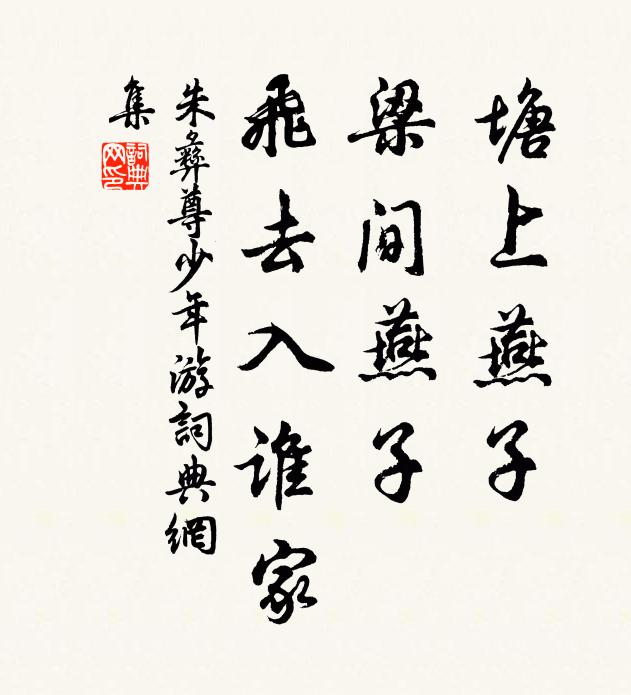 塘上燕子
梁間燕子
飛去入誰家
朱彝尊少年游詞典網
集
詞典網印